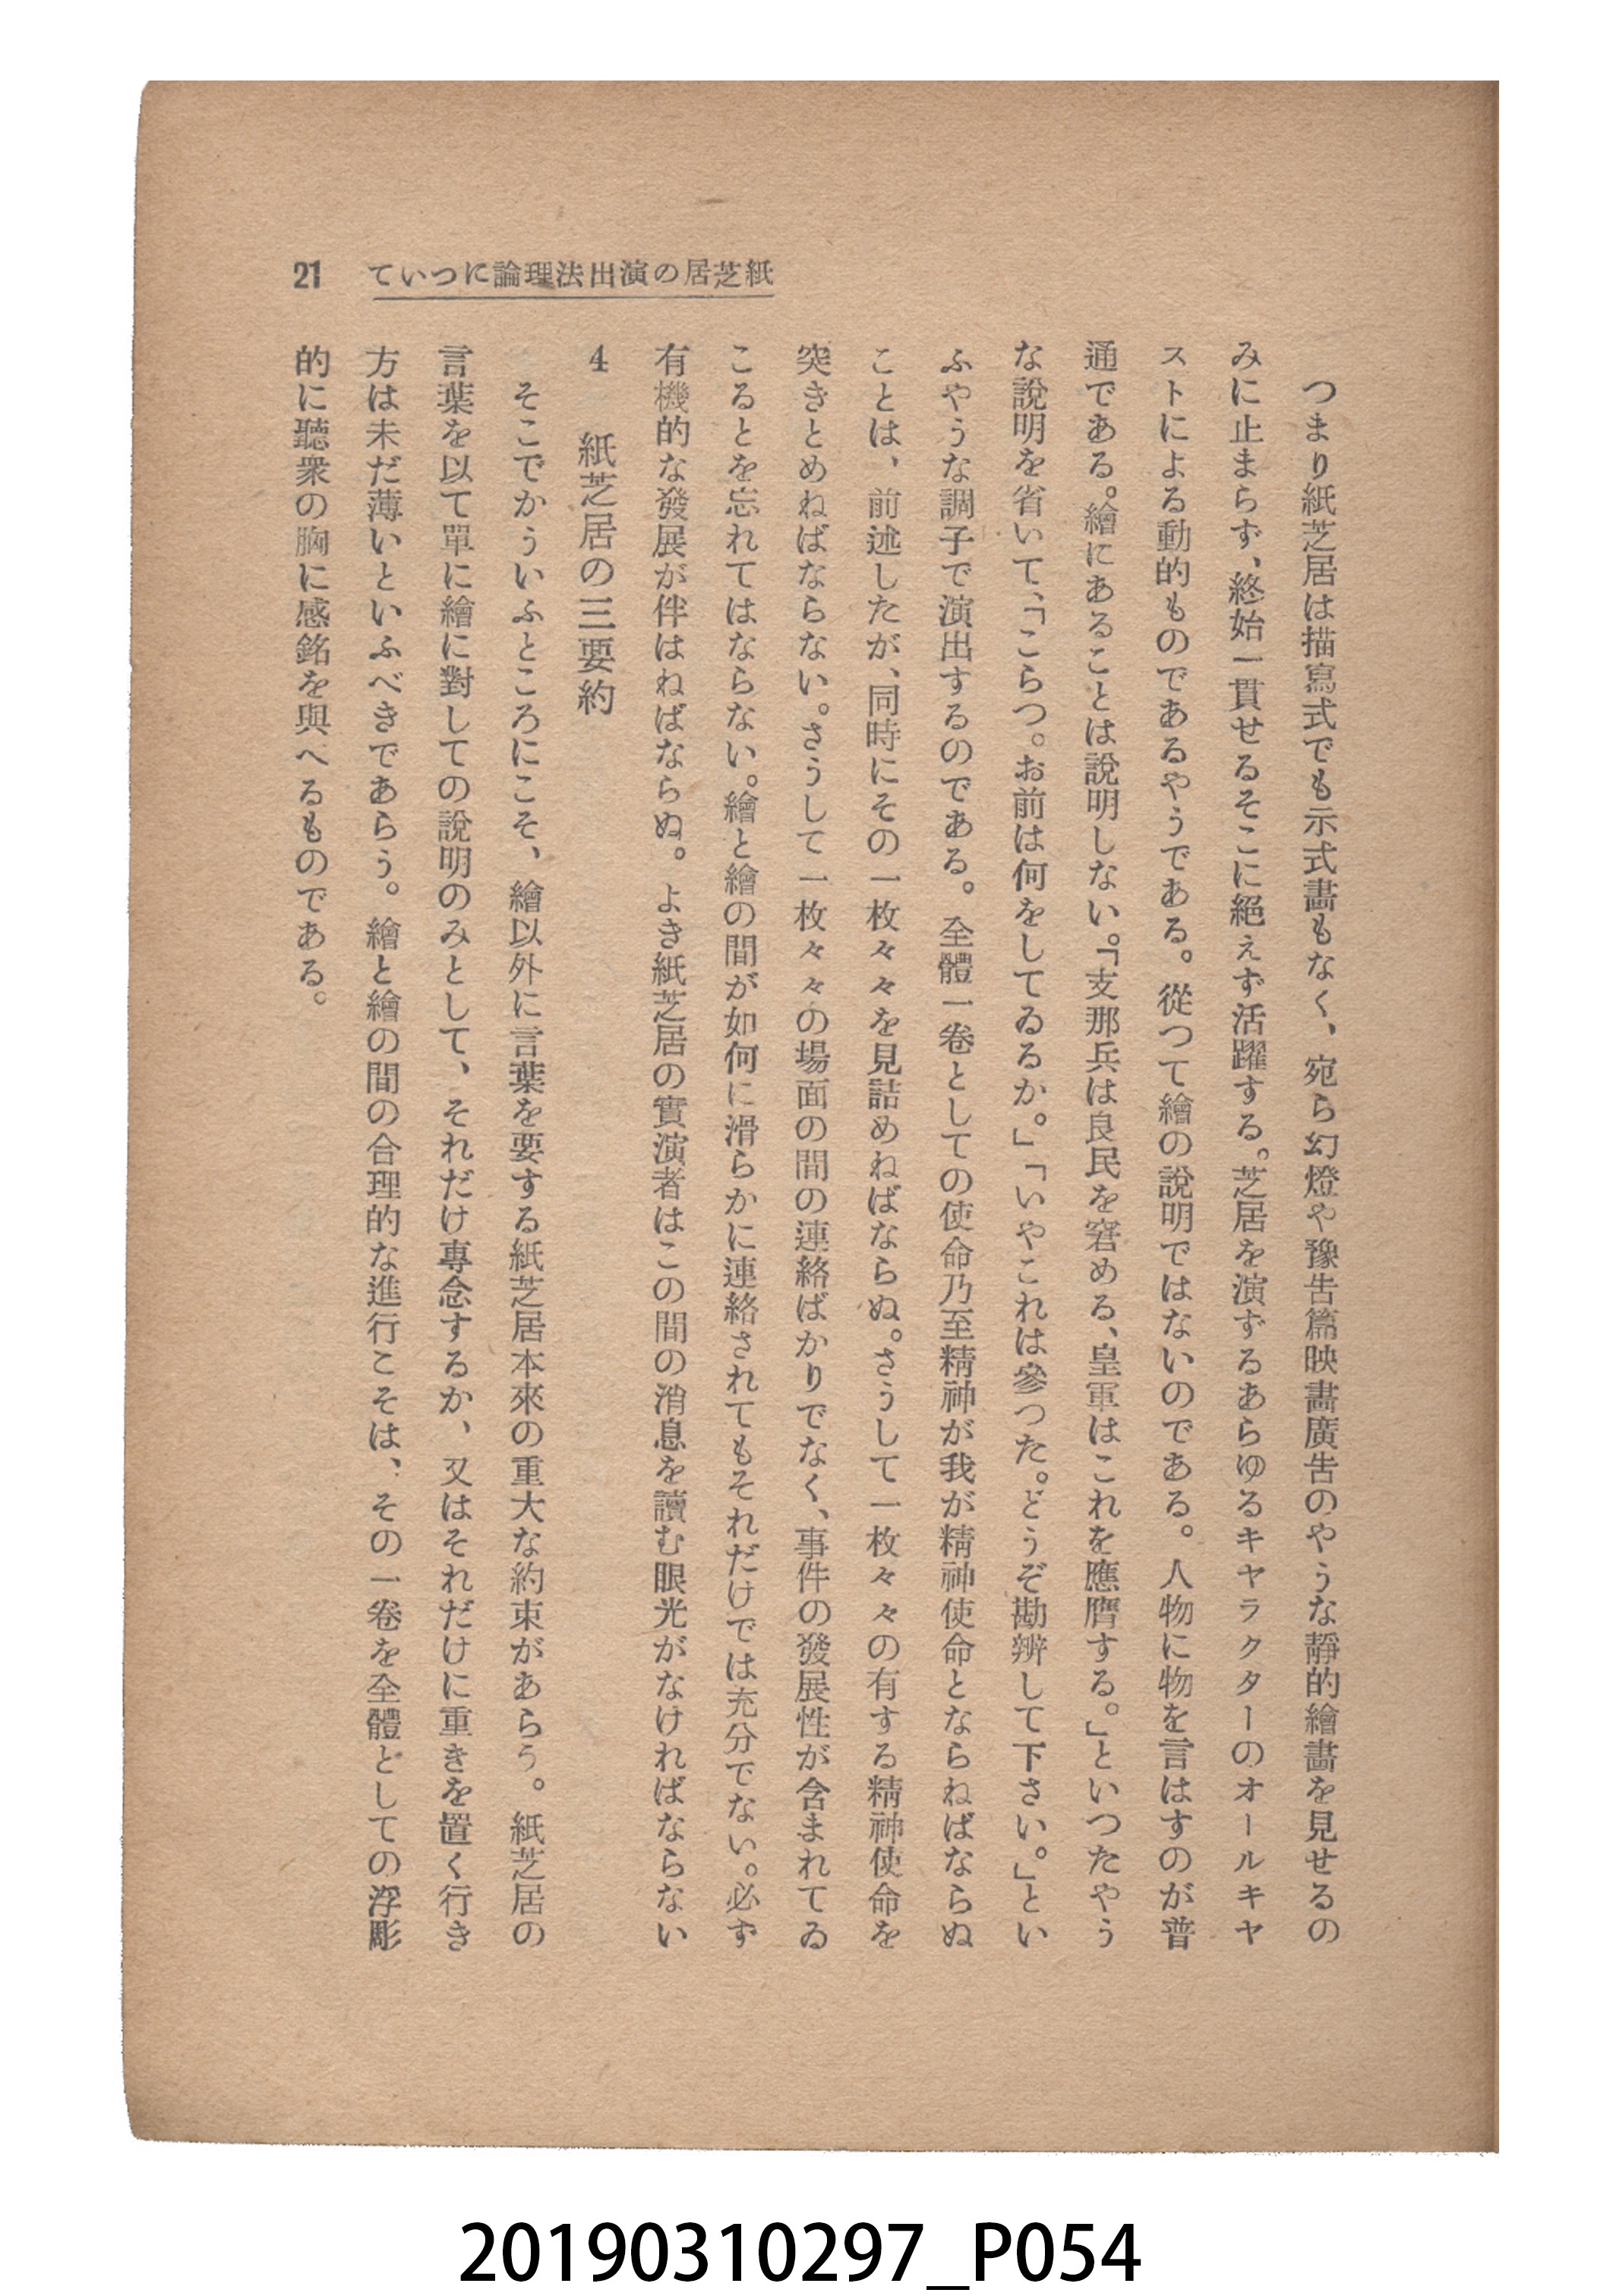 紙芝居の演出法理論について 21
つまり紙芝居は描寫式でも示式畵もなく、宛ら幻燈や豫告篇映畵廣告のやうな靜的繪畵を見せるの
みに止まらず、終始一貫せるそこに絕えず活躍する。芝居を演ずるあらゆるキヤラクターのオールキヤ
ストによる動的ものであるやうである。從つて繪の說明ではないのである。人物に物を言はすのが普
通である。繪にあることは說明しない。「支那兵は良民を窘める、皇軍はこれを應膺する。」といつたやう
な說明を省いて、「こらつ。お前は何をしてゐるか。」「いやこれは參つた。どうぞ勘辨して下さい。」とい
ふやうな調子で演出するのである。全體一卷としての使命乃至精神が我が精神使命とならねばならぬ
ことは、前述したが、同時にその一枚々々を見詰めねばならぬ。さうして一枚々々の有する精神使命を
突きとめねばならない。さうして一枚々々の場面の間の連絡ばかりでなく、事件の發展性が含まれてゐ
こるとを忘れてはならない。繪と繪の間が如何に滑らかに連絡されてもそれだけでは充分でない。必ず
有機的な發展が伴はねばならぬ。よき紙芝居の實演者はこの間の消息を讀む眼光がなければならない
4 紙芝居の三要約
そこでかういふところにこそ、繪以外に言葉を要する紙芝居本來の重大な約束があらう。紙芝居の
言葉を以て單に繪に對しての說明のみとして、それだけ專念するか、又はそれだけに重きを置く行き
方は未だ薄いといふべきであらう。繪と繪の間の合理的な進行こそは、その一卷を全體としての浮彫
的に聽衆の胸に感銘を與へるものである。
20190310297_P054